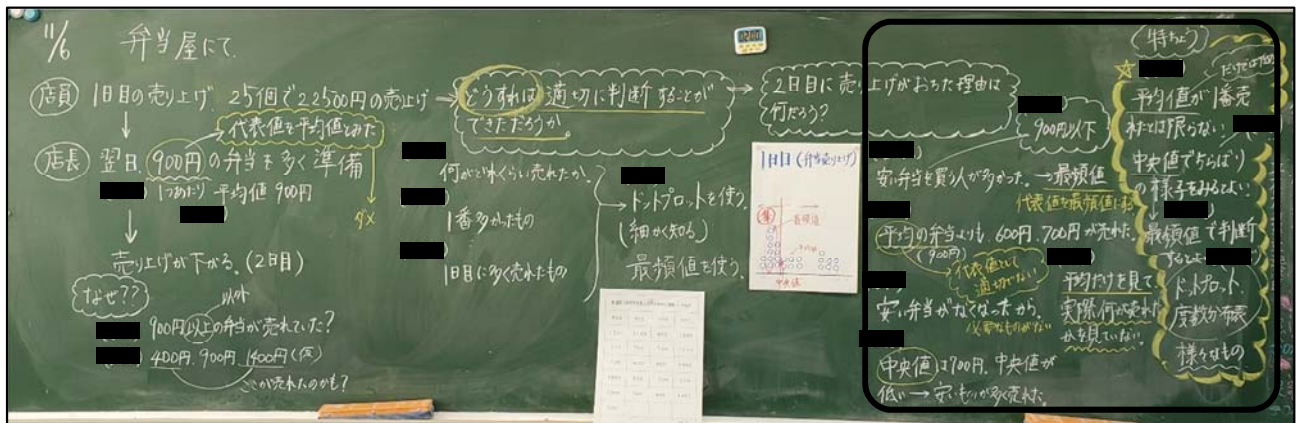 11/6 弁当屋にて.
店員 1日目の売り上げ. 25個で22500円の売上げ
代表値を平均値とみた
ダメ
店長 翌日, 900円の弁当を多く準備
1つあたり 平均値 900円
売り上げが下がる. (2日目)
なぜ??
以外
900円以上の弁当が売れていた?
400円, 900円, 1400円(仮)
ここが売れたのかも?
どうすれば 適切に判断することが
できただろうか
何がどれくらい売れたか.
1番多かたもの
1日目に多く売れたもの
ドットプロットを使う.
(細かく知る)
最頻値を使う.
2日目に売り上げがおちた理由は
何だろう?
1日目(弁当売り上げ)
最頻値
中央値
900円以下
安い弁当を買う人が多かった. → 最頻値
代表値を最頻値にする
平均の弁当よりも, 600円, 700円が売れた.
(900円)
代表値として
適切でない
安い弁当がなくなったから.
必要なものがない
平均だけを見て
実際何が売れた
かを見ていない.
中央値は700円, 中央値が
低い → 安いものが多く売れた.
特ちょう
☆
だけでは
平均値が1番売
れたとは限らない
中央値でちらばり
の様子をみるとよい
最頻値で判断
するとよい
ドットプロット,
度数分布表
様々なもの